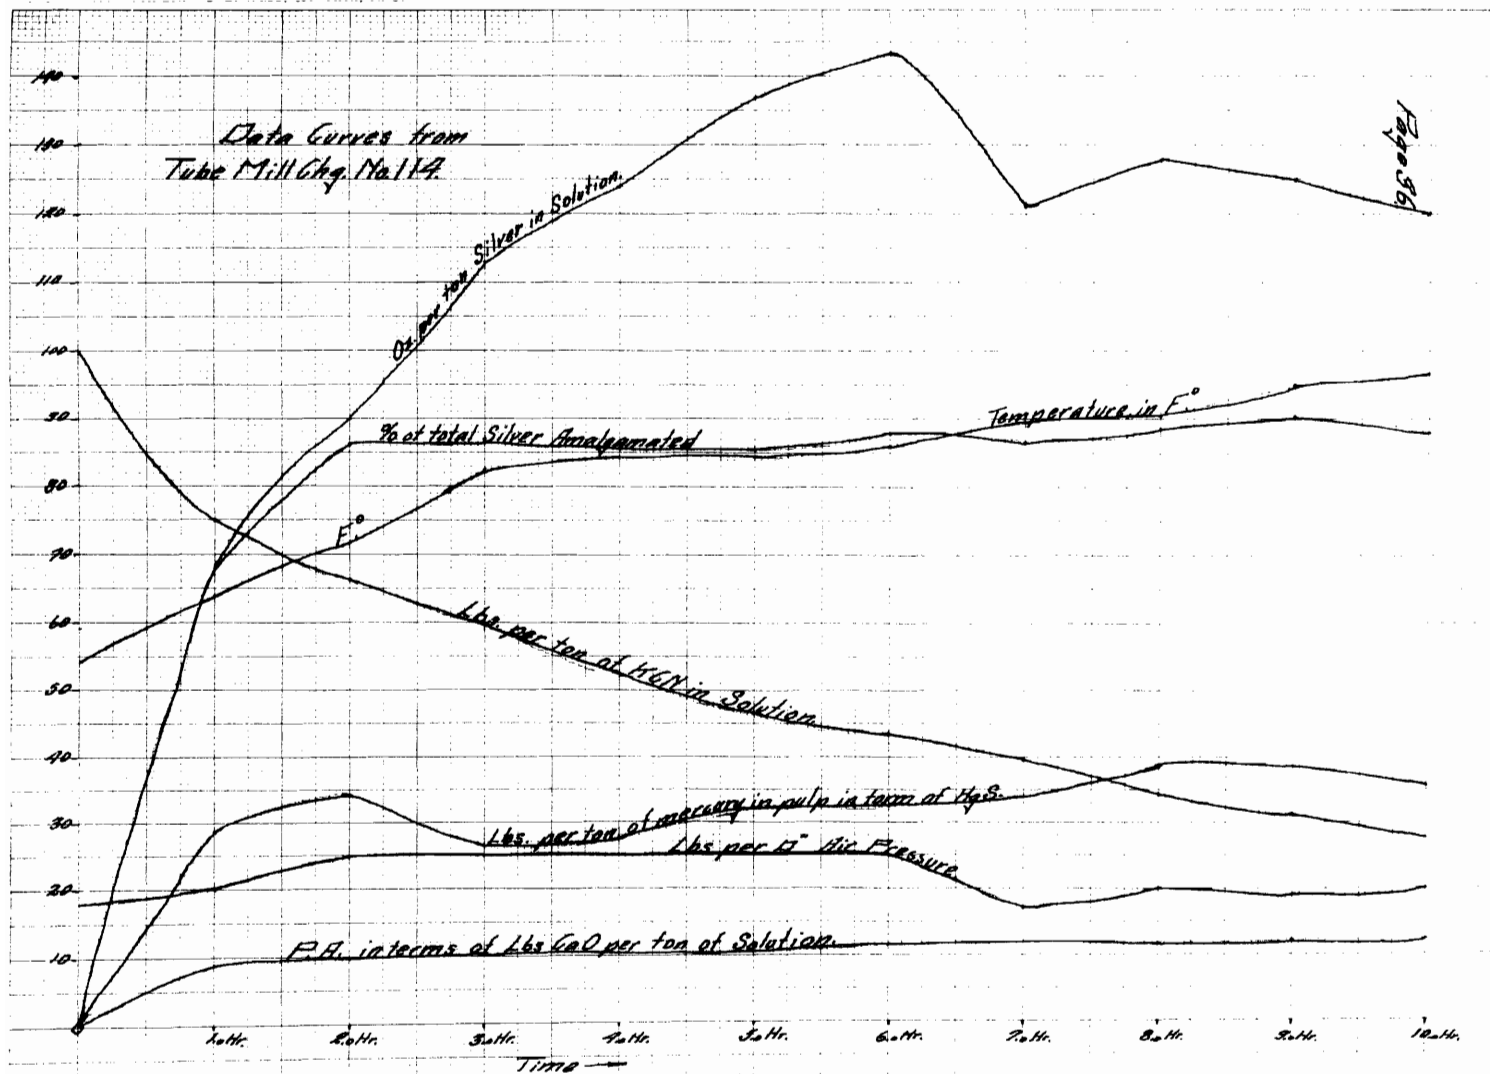 Data Curves from
Tube Mill Chg. No. 114.
Page 96
140
130
120
110
100
90
80
70
60
50
40
30
20
10
Oz. per ton Silver in Solution.
% of total Silver Amalgamated
Temperature in F.°
F.°
Lbs. per ton of KCN in Solution.
Lbs. per ton of mercury in pulp in term of HgS.
Lbs per □" Air Pressure.
P.A. in terms of Lbs CaO per ton of Solution.
1.Hr.
2.Hr.
3.Hr.
4.Hr.
5.Hr.
6.Hr.
7.Hr.
8.Hr.
9.Hr.
10.Hr.
Time →